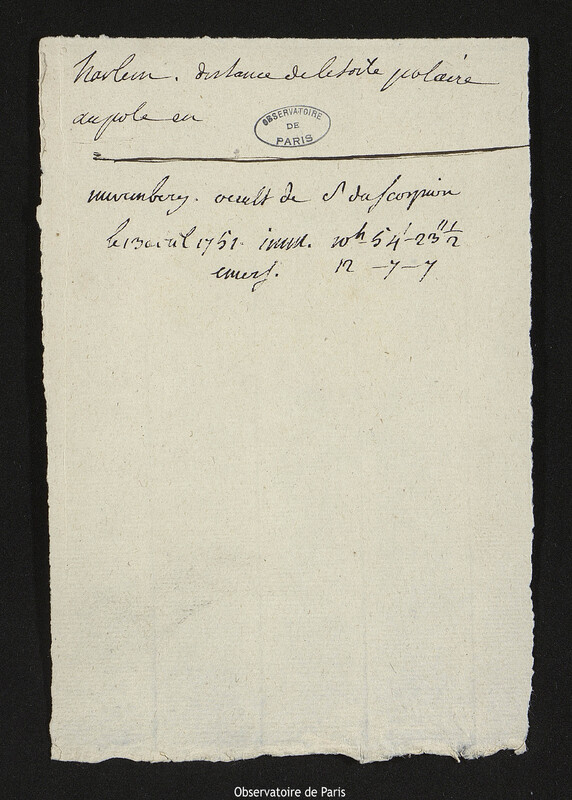 harlem. distance de letoile polaire
du pole en
OBSERVATOIRE
DE
PARIS
nuremberg. occult de δ du scorpion
le 13 avril 1751. imm. 10h 54'-23"½
emers. 12 -7-7
Observatoire de Paris